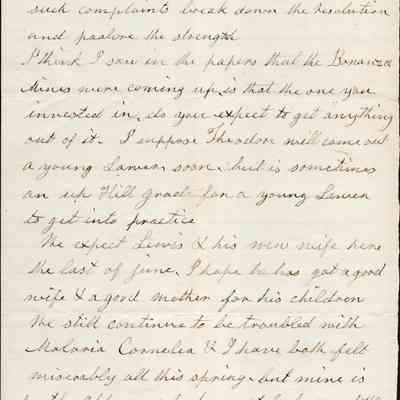 such complaints break down the resolution
and paslore the strength
I think I saw in the papers that the Bonanza
Mines were coming up, is that the one you
invested in, do you expect to get anything
out of it. I suppose Theodore will come out
a young Lawer soon, but is sometimes
an up Hill grade for a young Lawer
to get into practice
We expect Lewis & his new wife here
the last of june, I hope he has got a good
wife & a good mother for his children
We still continue to be troubled with
Malaria Cornelea & I have both felt
miserably all this spring, but mine is